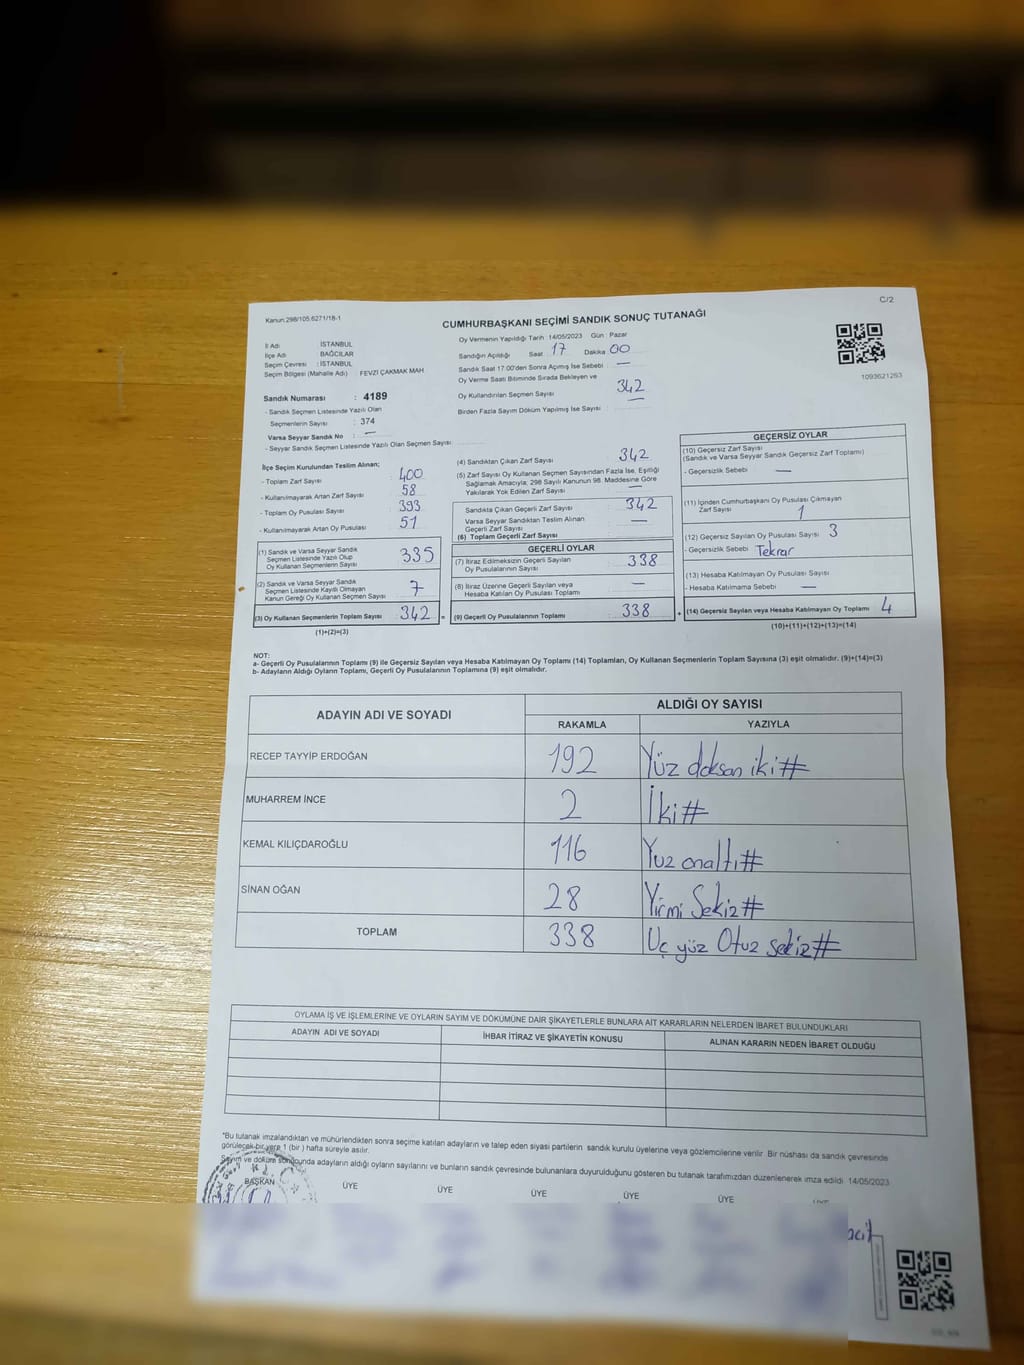 C/2
Kanun:298/105.6271/18-1
CUMHURBAŞKANI SEÇİMİ SANDIK SONUÇ TUTANAĞI
1093621263
İl Adı : İSTANBUL
İlçe Adı : BAĞCILAR
Seçim Çevresi : İSTANBUL
Seçim Bölgesi (Mahalle Adı) : FEVZİ ÇAKMAK MAH
Sandık Numarası : 4189
- Sandık Seçmen Listesinde Yazılı Olan
Seçmenlerin Sayısı : 374
Varsa Seyyar Sandık No : —
- Seyyar Sandık Seçmen Listesinde Yazılı Olan Seçmen Sayısı
Oy Vermenin Yapıldığı Tarih 14/05/2023 Gün : Pazar
Sandığın Açıldığı Saat 17 Dakika 00
Sandık Saat 17.00'den Sonra Açılmış İse Sebebi : —
Oy Verme Saati Bitiminde Sırada Bekleyen ve
Oy Kullandırılan Seçmen Sayısı 342
Birden Fazla Sayım Döküm Yapılmış İse Sayısı : —
İlçe Seçim Kurulundan Teslim Alınan;
- Toplam Zarf Sayısı : 400
- Kullanılmayarak Artan Zarf Sayısı : 58
- Toplam Oy Pusulası Sayısı : 393
- Kullanılmayarak Artan Oy Pusulası : 51
(1) Sandık ve Varsa Seyyar Sandık
Seçmen Listesinde Yazılı Olup
Oy Kullanan Seçmenlerin Sayısı 335
(2) Sandık ve Varsa Seyyar Sandık
Seçmen Listesinde Kayıtlı Olmayan
Kanun Gereği Oy Kullanan Seçmen Sayısı 7
(3) Oy Kullanan Seçmenlerin Toplam Sayısı 342 =
(1)+(2)=(3)
(4) Sandıktan Çıkan Zarf Sayısı 342
(5) Zarf Sayısı Oy Kullanan Seçmen Sayısından Fazla İse, Eşitliği
Sağlamak Amacıyla; 298 Sayılı Kanunun 98. Maddesine Göre
Yakılarak Yok Edilen Zarf Sayısı —
Sandıkta Çıkan Geçerli Zarf Sayısı 342
Varsa Seyyar Sandıktan Teslim Alınan
Geçerli Zarf Sayısı —
(6) Toplam Geçerli Zarf Sayısı
GEÇERLİ OYLAR
(7) İtiraz Edilmeksizin Geçerli Sayılan
Oy Pusulalarının Sayısı 338
(8) İtiraz Üzerine Geçerli Sayılan veya
Hesaba Katılan Oy Pusulası Toplamı —
(9) Geçerli Oy Pusulalarının Toplamı 338 +
GEÇERSİZ OYLAR
(10) Geçersiz Zarf Sayısı
(Sandık ve Varsa Seyyar Sandık Geçersiz Zarf Toplamı)
- Geçersizlik Sebebi —
(11) İçinden Cumhurbaşkanı Oy Pusulası Çıkmayan
Zarf Sayısı 1
(12) Geçersiz Sayılan Oy Pusulası Sayısı 3
- Geçersizlik Sebebi Tekrar
(13) Hesaba Katılmayan Oy Pusulası Sayısı
- Hesaba Katılmama Sebebi —
(14) Geçersiz Sayılan veya Hesaba Katılmayan Oy Toplamı 4
(10)+(11)+(12)+(13)=(14)
NOT:
a- Geçerli Oy Pusulalarının Toplamı (9) ile Geçersiz Sayılan veya Hesaba Katılmayan Oy Toplamı (14) Toplamları, Oy Kullanan Seçmenlerin Toplam Sayısına (3) eşit olmalıdır. (9)+(14)=(3)
b- Adayların Aldığı Oyların Toplamı, Geçerli Oy Pusulalarının Toplamına (9) eşit olmalıdır.
ADAYIN ADI VE SOYADI ALDIĞI OY SAYISI
RAKAMLA YAZIYLA
RECEP TAYYİP ERDOĞAN 192 Yüz doksan iki#
MUHARREM İNCE 2 İki#
KEMAL KILIÇDAROĞLU 116 Yuz onaltı#
SİNAN OĞAN 28 Yirmi Sekiz#
TOPLAM 338 Üç yüz Otuz sekiz#
OYLAMA İŞ VE İŞLEMLERİNE VE OYLARIN SAYIM VE DÖKÜMÜNE DAİR ŞİKAYETLERLE BUNLARA AİT KARARLARIN NELERDEN İBARET BULUNDUKLARI
ADAYIN ADI VE SOYADI İHBAR İTİRAZ VE ŞİKAYETİN KONUSU ALINAN KARARIN NEDEN İBARET OLDUĞU
*Bu tutanak imzalandıktan ve mühürlendikten sonra seçime katılan adayların ve talep eden siyasi partilerin sandık kurulu üyelerine veya gözlemcilerine verilir. Bir nüshası da sandık çevresinde
görülecek bir yere 1 (bir) hafta süreyle asılır.
Sayım ve döküm sonucunda adayların aldığı oyların sayılarını ve bunların sandık çevresinde bulunanlara duyurulduğunu gösteren bu tutanak tarafımızdan düzenlenerek imza edildi. 14/05/2023
BAŞKAN ÜYE ÜYE ÜYE ÜYE ÜYE ÜYE